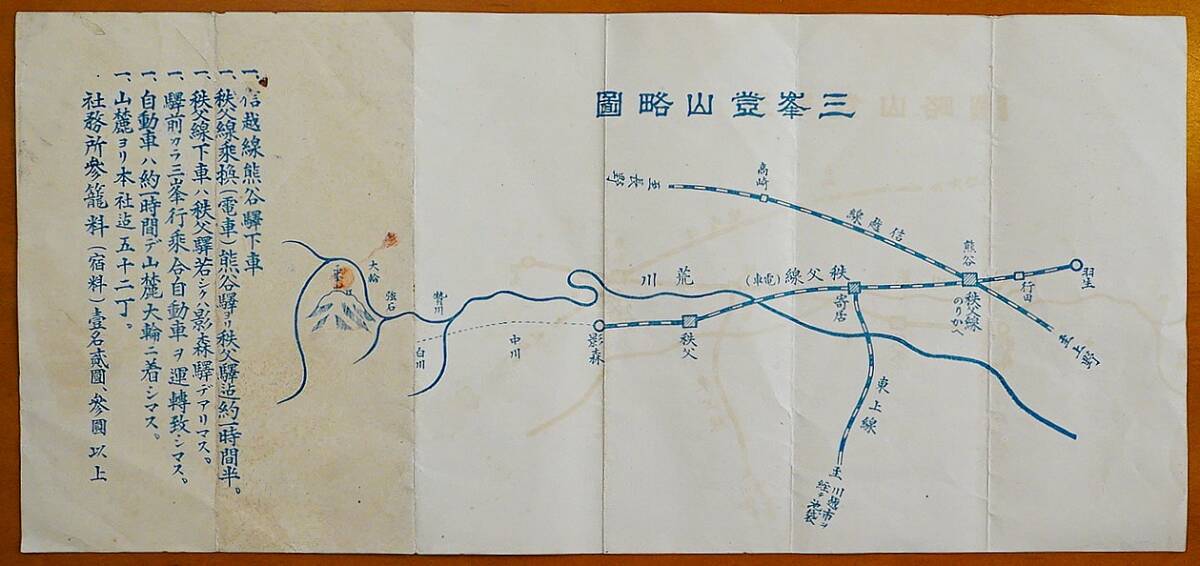 三峯登山略圖
至長野
高崎
信越線
熊谷
秩父線
のりかへ
行田
羽生
至上野
秩父線(電車)
荒川
寄居
東上線
至川越市ヲ
経テ池袋
秩父
影森
中川
白川
贄川
強石
大輪
一、信越線熊谷驛下車
一、秩父線乗換(電車)熊谷驛ヨリ秩父驛迄約一時間半。
一、秩父線下車ハ秩父驛若シクハ影森驛デアリマス。
一、驛前カラ三峯行乗合自動車ヲ運轉致シマス。
一、自動車ハ約一時間デ山麓大輪ニ着シマス。
一、山麓ヨリ本社迄五十二丁。
社務所參籠料(宿料)壹名貳圓、參圓以上